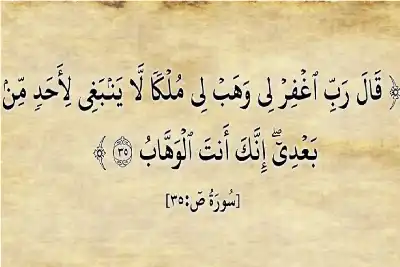 ﴿ قَالَ رَبِّ ٱغْفِرْ لِى وَهَبْ لِى مُلْكًا لَّا يَنۢبَغِى لِأَحَدٍ مِّنۢ
بَعْدِىٓ ۖ إِنَّكَ أَنتَ ٱلْوَهَّابُ ۝٣٥ ﴾
[سُورَةُ صٓ:٣٥]